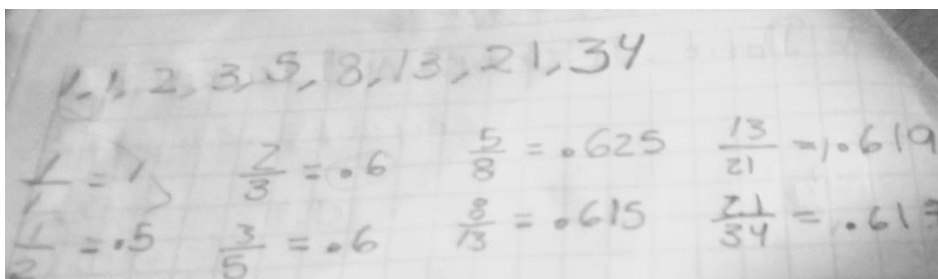 1, 1, 2, 3, 5, 8, 13, 21, 34
1/1 = 1, 2/3 = .6 5/8 = .625 13/21 = .619
1/2 = .5 3/5 = .6 8/13 = .615 21/34 = .617